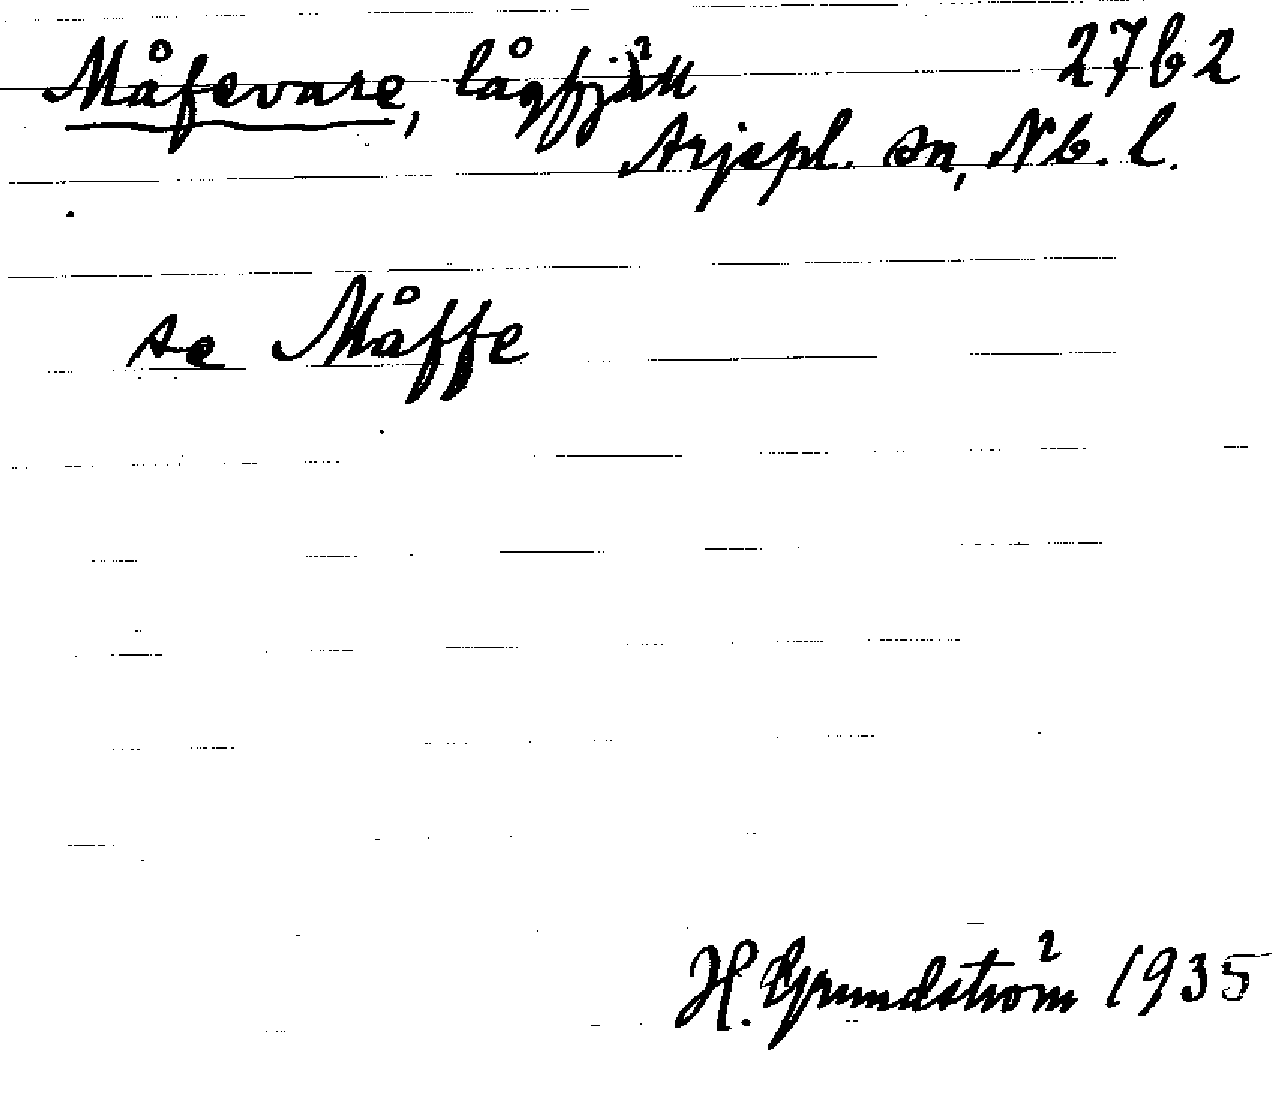 Måfevare, lågfjäll 27b2
Arjepl. sn, Nb. l.
se Måffe
H. Grundström 1935